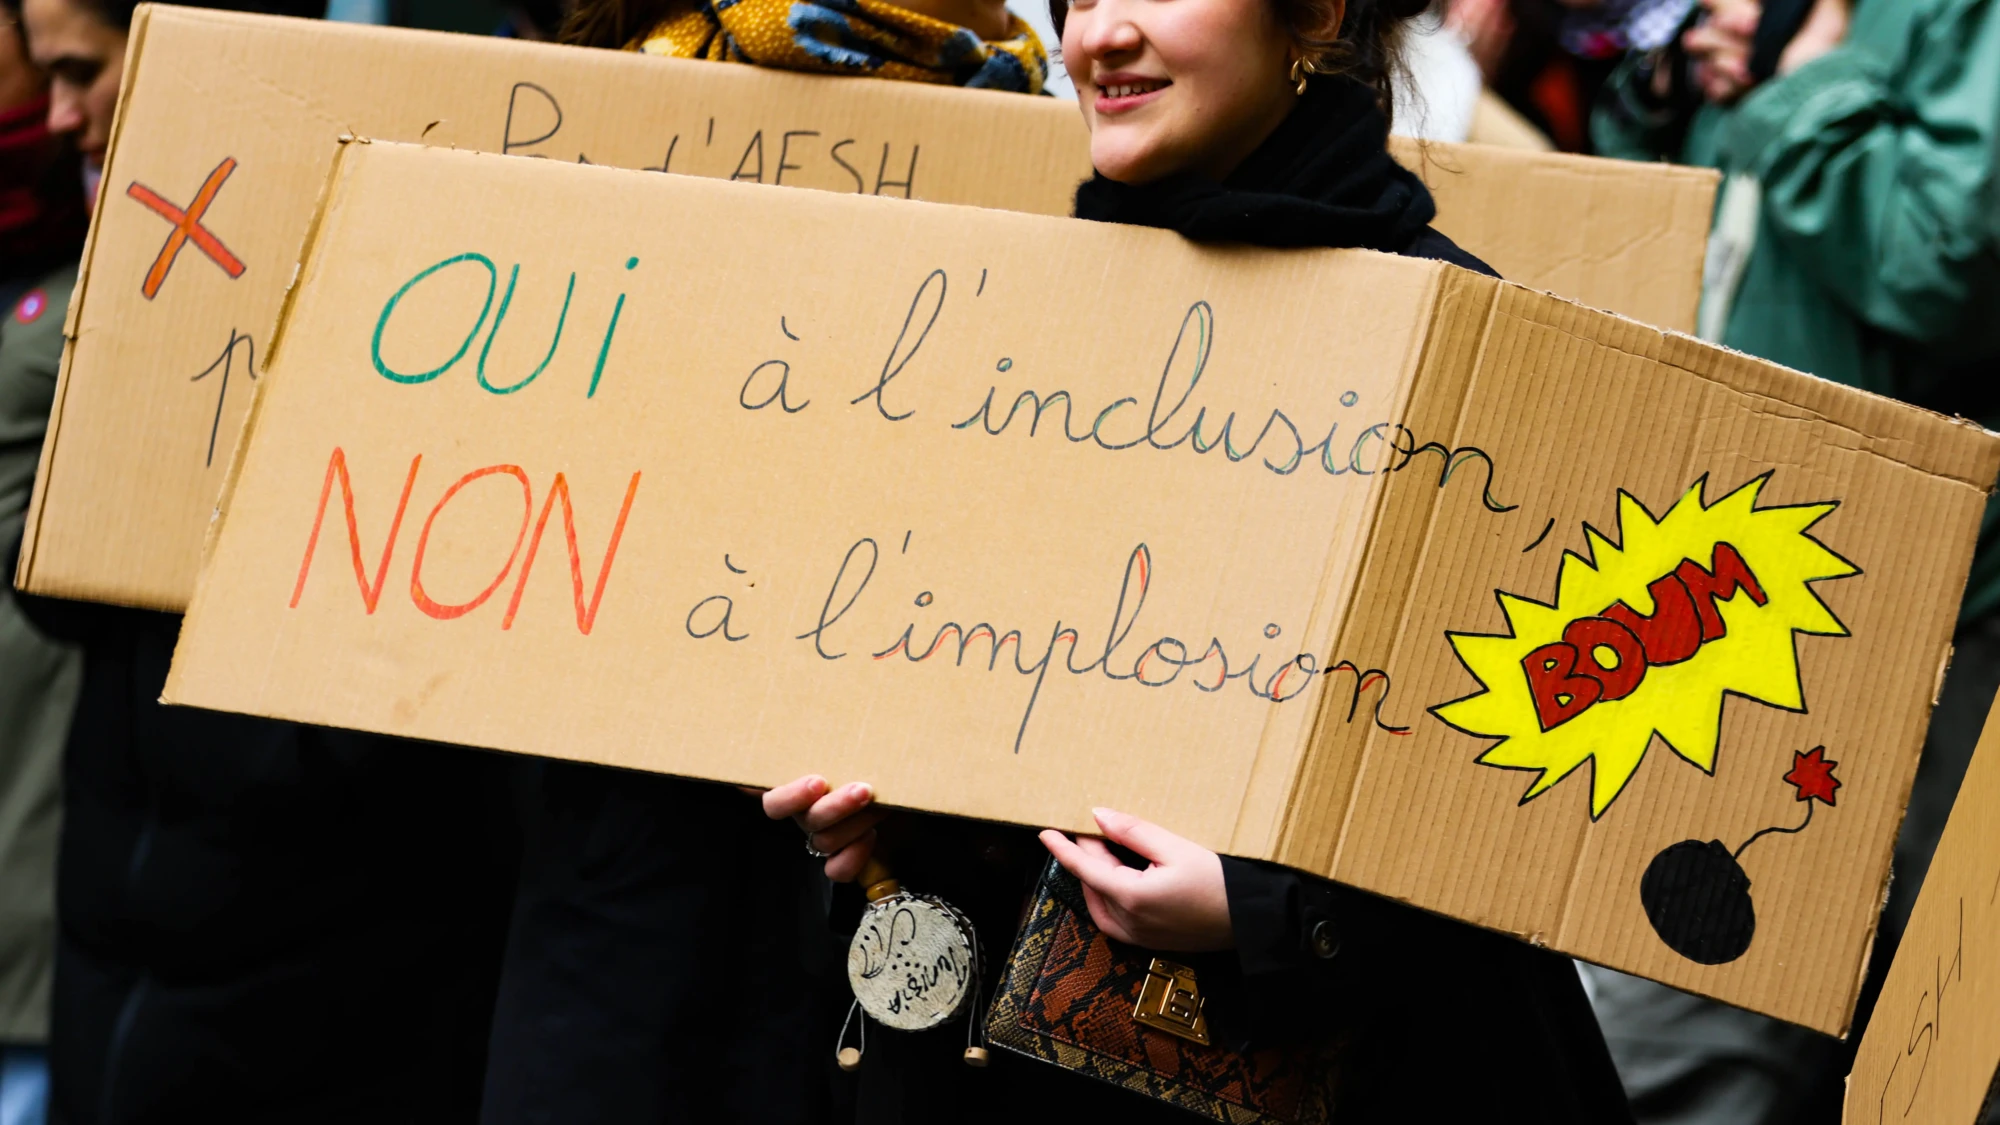 Pas d'AESH
p
OUi à l'inclusion,
NON à l'implosion
BOUM
TunisiA
ESH